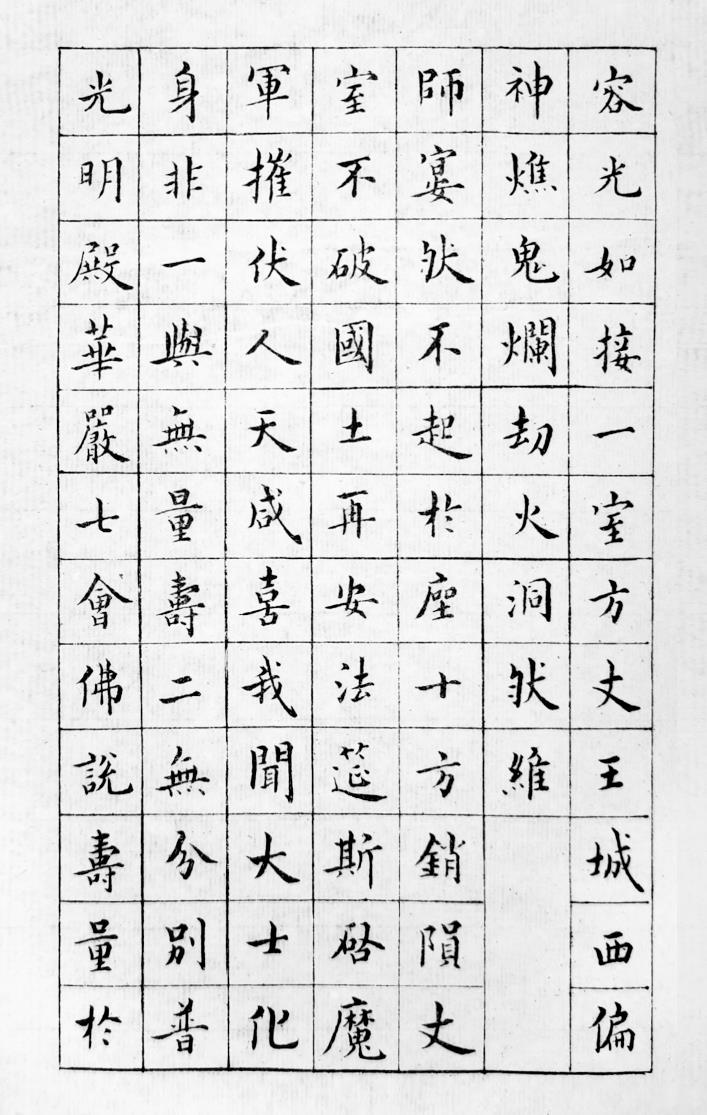 容光如接一室方丈王城西偏
神燋鬼爛劫火洞狀維
師宴狀不起於座十方銷隕丈
室不破國土再安法筵斯砳魔
軍摧伏人天咸喜我聞大士化
身非一與無量壽二無分別普
光明殿華嚴七會佛說壽量於